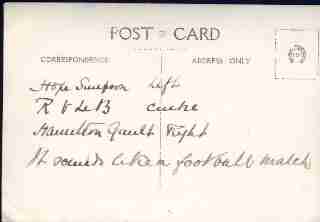 POST CARD
CORRESPONDENCE
ADDRESS ONLY
Hope Simpson left
R V de B centre
Hamilton Gault Right
It sounds like a football match